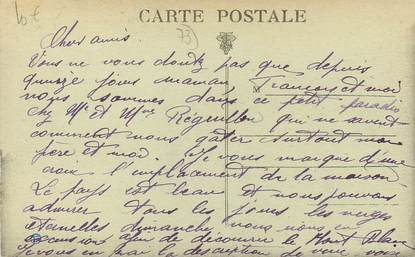 10 €
CARTE POSTALE
73)
Chers amis.
Vous ne vous doutez pas que depuis
quinze jours maman François et moi
nous sommes dans ce petit paradis
chez Mr et Mme Reguillon qui ne savent
comment nous gater surtout mon
pere et moi. Je vous marque d'une
croix l'emplacement de la maison
Le pays est beau et nous pouvons
admirer tous les jours les neiges
eternelles dimanche nous nous en
excursion afin de découvrir le Mont Blanc
la description de vive voix